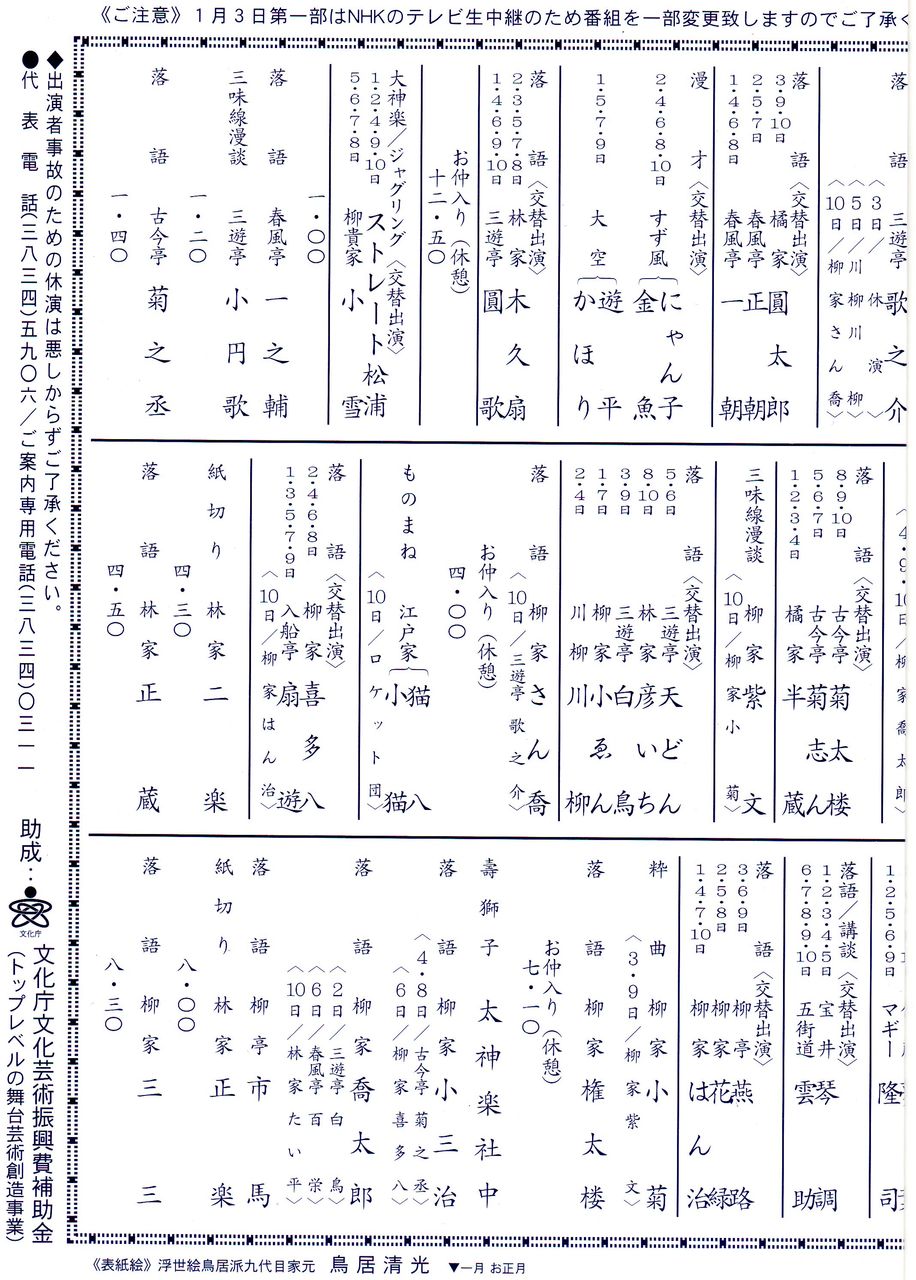 《ご注意》１月３日第一部はNHKのテレビ生中継のため番組を一部変更致しますのでご了承く
落語 三遊亭歌之介
〈3日／休演〉
〈5日／川柳川柳〉
〈10日／柳家さん喬〉
落語〈交替出演〉
3・9・10日 橘家圓太郎
2・5・7日 春風亭正朝
1・4・6・8日 春風亭一朝
漫才〈交替出演〉
2・4・6・8・10日 すず風 にゃん子 金魚
1・5・7・9日 大空 遊平 かほり
落語〈交替出演〉
2・3・5・7・8日 林家木久扇
1・4・6・9・10日 三遊亭圓歌
お仲入り（休憩）
十二・五〇
大神楽／ジャグリング〈交替出演〉
1・2・4・9・10日 ストレート松浦
3・5・6・7・8日 柳貴家小雪
一・〇〇
落語 春風亭一之輔
三味線漫談 三遊亭小円歌
一・二〇
落語 古今亭菊之丞
一・四〇
〈4・9・10日／柳家喬太郎〉
落語〈交替出演〉
8・9・10日 古今亭菊太楼
5・6・7日 古今亭菊志ん
1・2・3・4日 橘家半蔵
三味線漫談 柳家紫文
〈10日／柳家小菊〉
落語〈交替出演〉
5・6日 三遊亭天どん
8・10日 林家彦いち
3・9日 三遊亭白鳥
1・7日 柳家小ゑん
2・4日 川柳川柳
落語 柳家さん喬
〈10日／三遊亭歌之介〉
お仲入り（休憩）
四・〇〇
ものまね 江戸家 猫八 小猫
〈10日／ロケット団〉
落語〈交替出演〉
2・4・6・8日 柳家喜多八
1・3・5・7・9日 入船亭扇遊
〈10日／柳家はん治〉
紙切り 林家二楽
四・三〇
落語 林家正蔵
四・五〇
1・2・5・6・9日 マギー隆司
落語／講談〈交替出演〉
1・2・3・4・5日 宝井琴調
6・7・8・9・10日 五街道雲助
落語〈交替出演〉
3・6・9日 柳亭燕路
2・5・8日 柳家花緑
1・4・7・10日 柳家はん治
粋曲 柳家小菊
〈3・9日／柳家紫文〉
落語 柳家権太楼
お仲入り（休憩）
七・一〇
壽獅子 太神楽社中
落語 柳家小三治
〈4・8日／古今亭菊之丞〉
〈6日／柳家喜多八〉
落語 柳家喬太郎
〈2日／三遊亭白鳥〉
〈6日／春風亭百栄〉
〈10日／林家たい平〉
落語 柳亭市馬
紙切り 林家正楽
八・〇〇
落語 柳家三三
八・三〇
◆出演者事故のための休演は悪しからずご了承ください。
●代表電話(三八三四)五九〇六／ご案内専用電話(三八三四)〇三一一
助成：
文化庁
文化庁文化芸術振興費補助金
（トップレベルの舞台芸術創造事業）
《表紙絵》浮世絵鳥居派九代目家元 鳥居清光 ▼一月 お正月